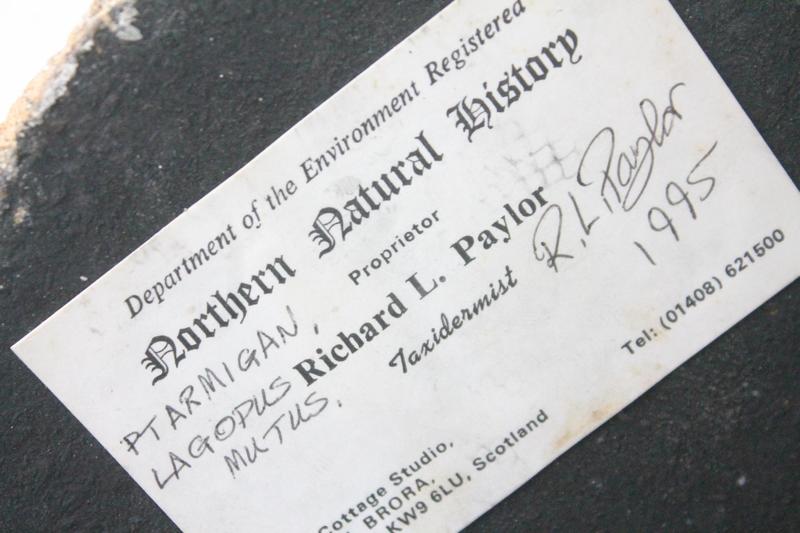 Department of the Environment Registered
Northern Natural History
Proprietor
Richard L. Paylor
Taxidermist
R. L. Paylor
1995
PTARMIGAN,
LAGOPUS
MUTUS.
Tel: (01408) 621500
Cottage Studio,
BRORA,
KW9 6LU, Scotland